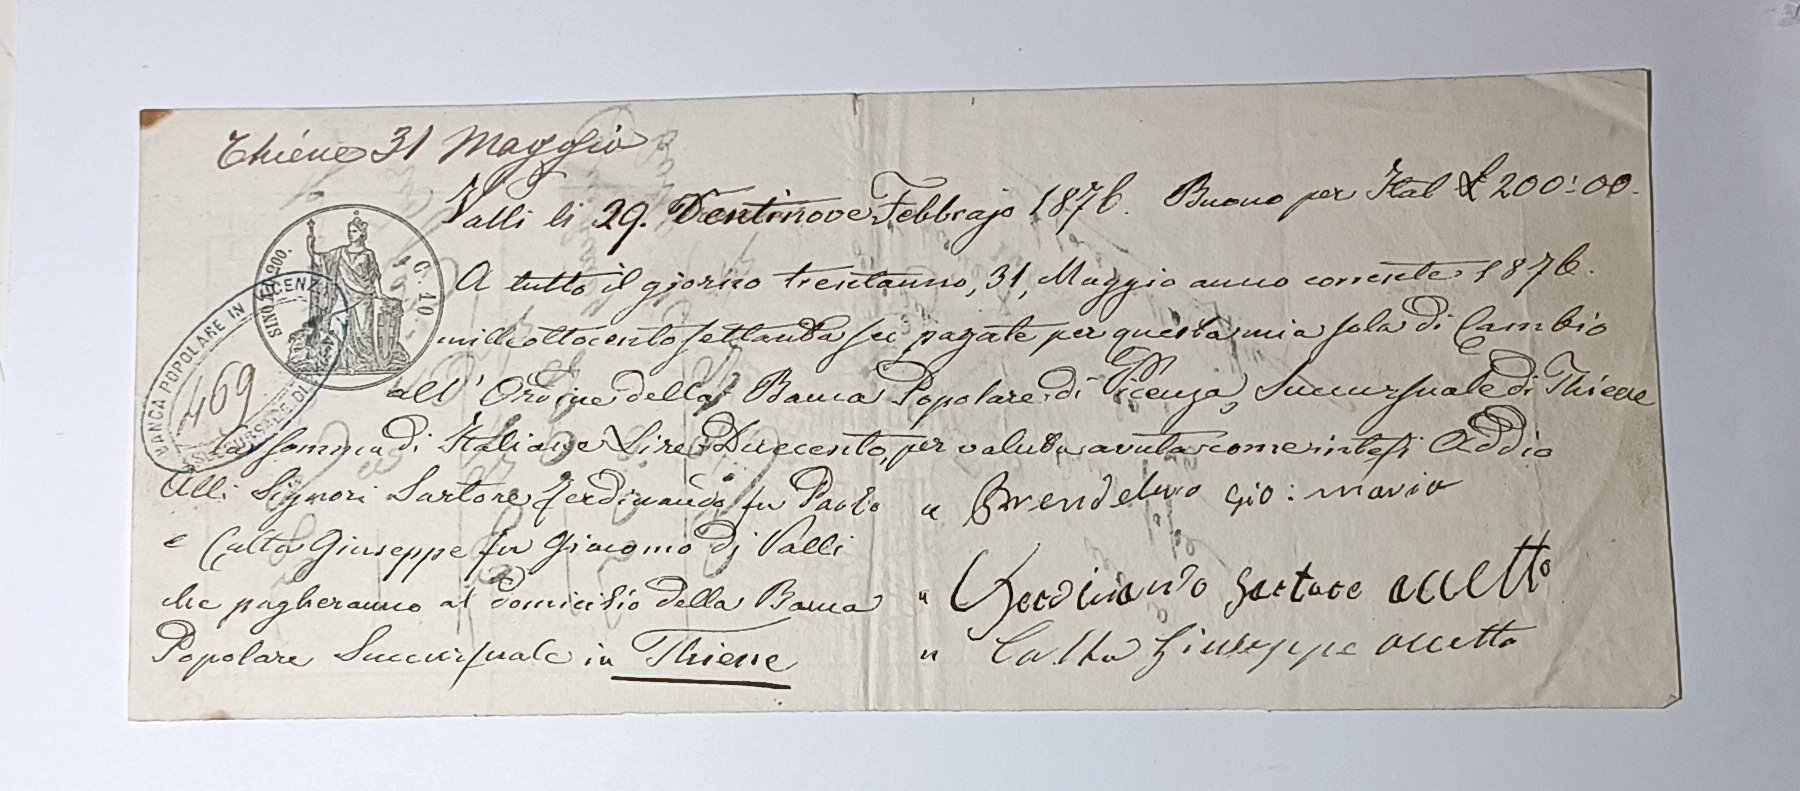 Thiene 31 Maggio
Valli li 29. Ventinove Febbrajo 1876. Buono per Ital £ 200:00.
SINO A L. 200.
C. 10
A tutto il giorno trentauno, 31, Maggio anno corrente 1876.
milleottocentosettanta sei pagate per questa mia sola di Cambio
all' Ordine della Banca Popolare di Vicenza, Succursuale di Thiene
la somma di Italiane Lire Duecento, per valuta avuta come intesi Addio
BANCA POPOLARE IN VICENZA
SUCCURSALE DI
469
Alli Signori Sartore Ferdinando fu Paolo
e Calta Giuseppe fu Giacomo di Valli
che pagheranno al domicilio della Banca
Popolare Succursuale in Thiene
" Gio: Maria
" Ferdinando Sartore accetto
" Calta Giuseppe accetto